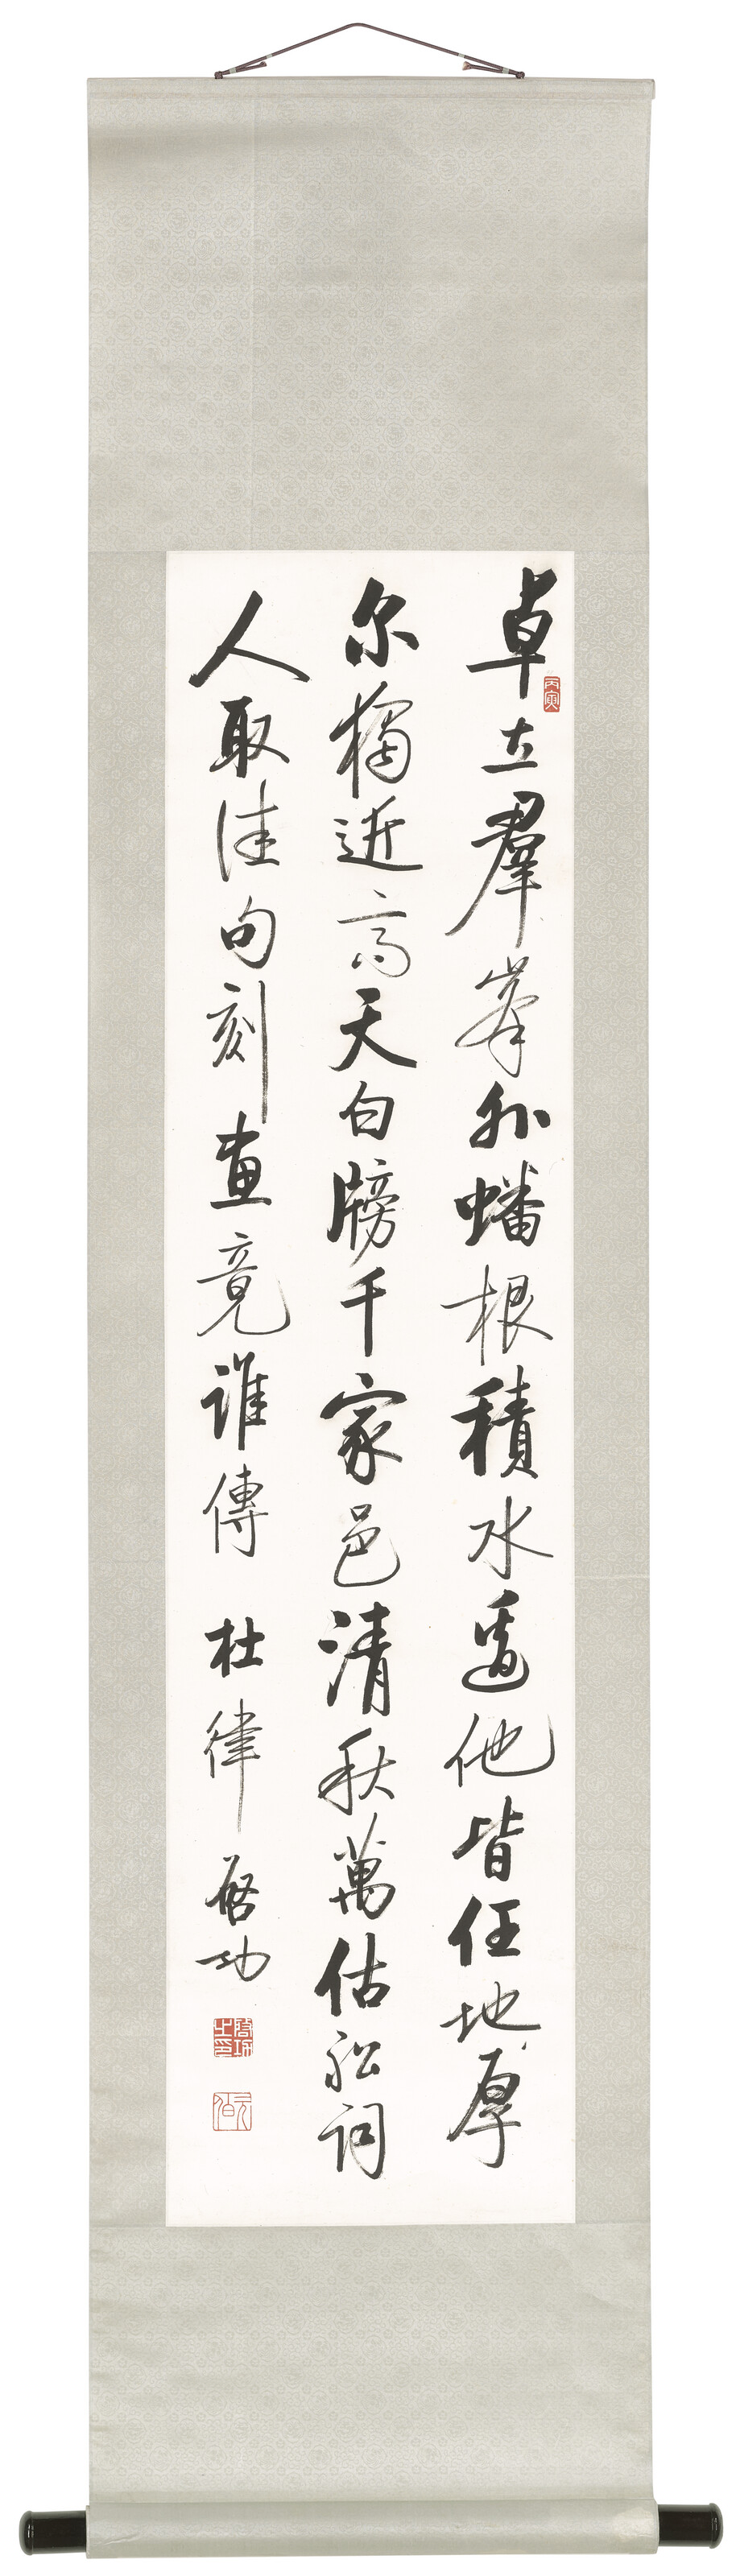 卓立羣峯外蟠根積水邊他皆任地厚
丙寅
尔獨近高天白牓千家邑清秋萬估舩詞
人取佳句刻畫竟誰傳 杜律 啓功
啓功之印
元白